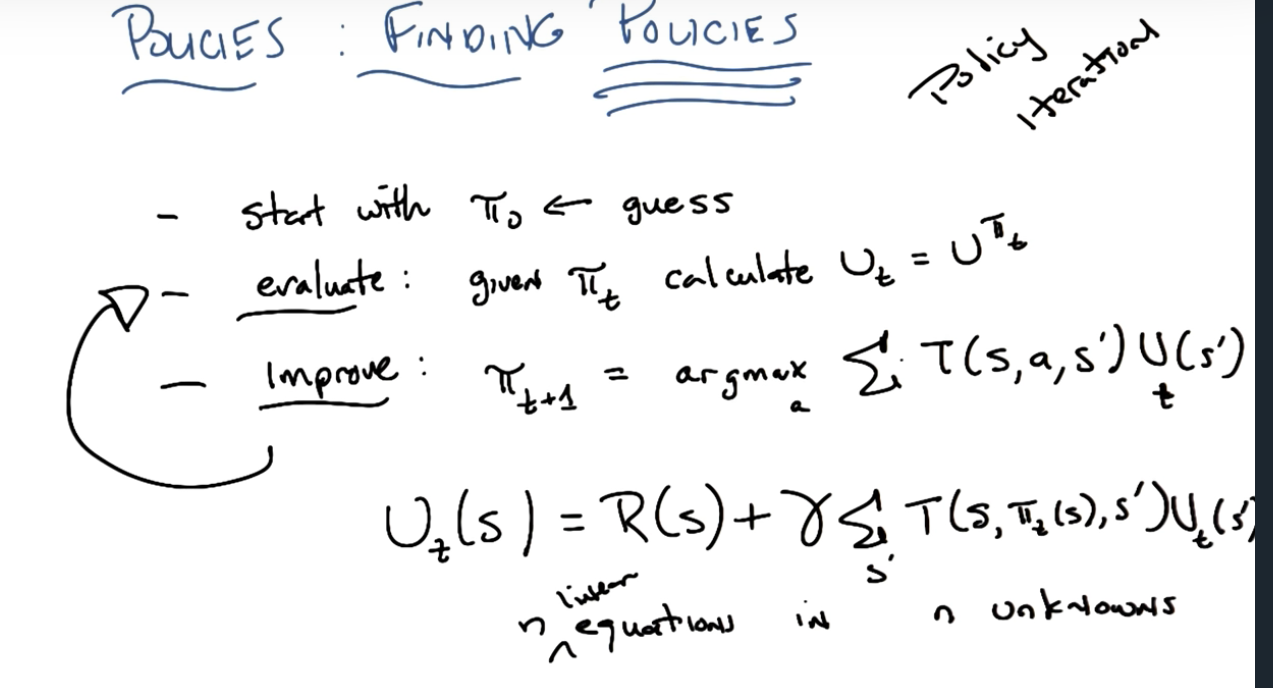 POLICIES : FINDING POLICIES
Policy
Iteration
- start with π₀ ← guess
- evaluate : given π_t calculate U_t = U^π_t
- Improve : π_t+1 = argmax_a Σ T(s,a,s') U_t(s')
U_t(s) = R(s) + γ Σ_s' T(s, π_t(s), s') U_t(s'
linear
n ^ equations in n unknowns